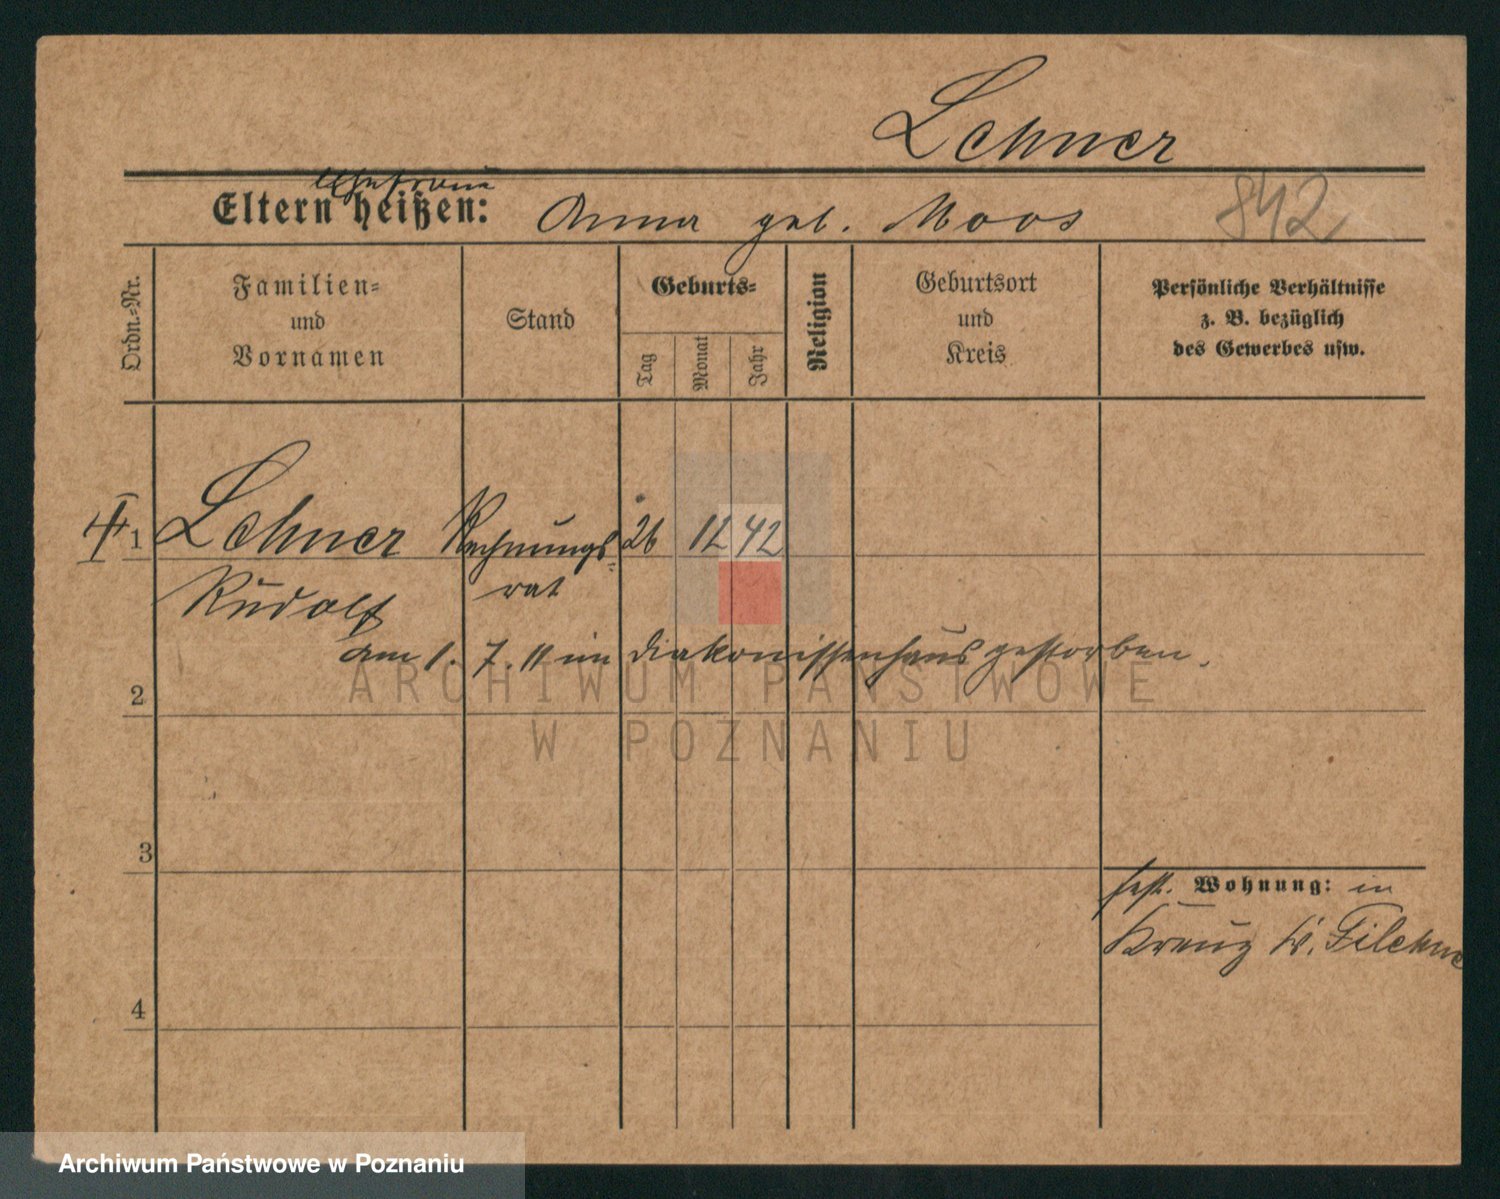 Lehner
Ehefrau
Eltern heißen: Anna geb. Moos 842
Ordn.-Nr.
Familien-
und
Vornamen
Stand
Geburts-
Tag
Monat
Jahr
Religion
Geburtsort
und
Kreis
Persönliche Verhältnisse
z. B. bezüglich
des Gewerbes usw.
1 Lehner Rechnungs- 26 12 42
Rudolf rat
am 1. 7. 11 im Diakonissenhaus gestorben.
2
3
fest. Wohnung: in
Kreuz Kr. Filehne
4
ARCHIWUM PAŃSTWOWE
W POZNANIU
Archiwum Państwowe w Poznaniu